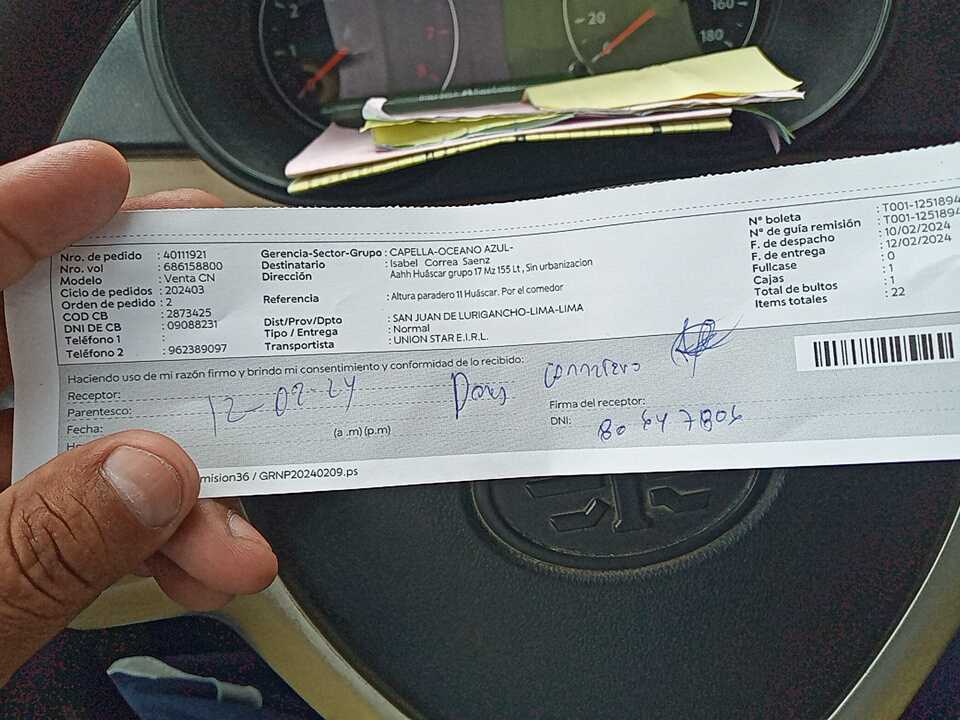 2
1
20
160
180
Nro. de pedido : 40111921
Nro. vol : 686158800
Modelo : Venta CN
Ciclo de pedidos : 202403
Orden de pedido : 2
COD CB : 2873425
DNI DE CB : 09088231
Teléfono 1 :
Teléfono 2 : 962389097
Gerencia-Sector-Grupo : CAPELLA-OCEANO AZUL-
Destinatario : Isabel Correa Saenz
Dirección Aahh Huáscar grupo 17 Mz 155 Lt , Sin urbanizacion
Referencia : Altura paradero 11 Huáscar. Por el comedor
Dist/Prov/Dpto : SAN JUAN DE LURIGANCHO-LIMA-LIMA
Tipo / Entrega : Normal
Transportista : UNION STAR E.I.R.L.
N° boleta : T001-1251894
N° de guía remisión : T001-1251894
F. de despacho : 10/02/2024
F. de entrega : 12/02/2024
Fullcase : 0
Cajas : 1
Total de bultos : 1
Items totales : 22
Haciendo uso de mi razón firmo y brindo mi consentimiento y conformidad de lo recibido:
Receptor:
Parentesco:
Fecha: 12-02-24
(a .m) (p.m)
Firma del receptor:
DNI: 80647806
mision36 / GRNP20240209.ps